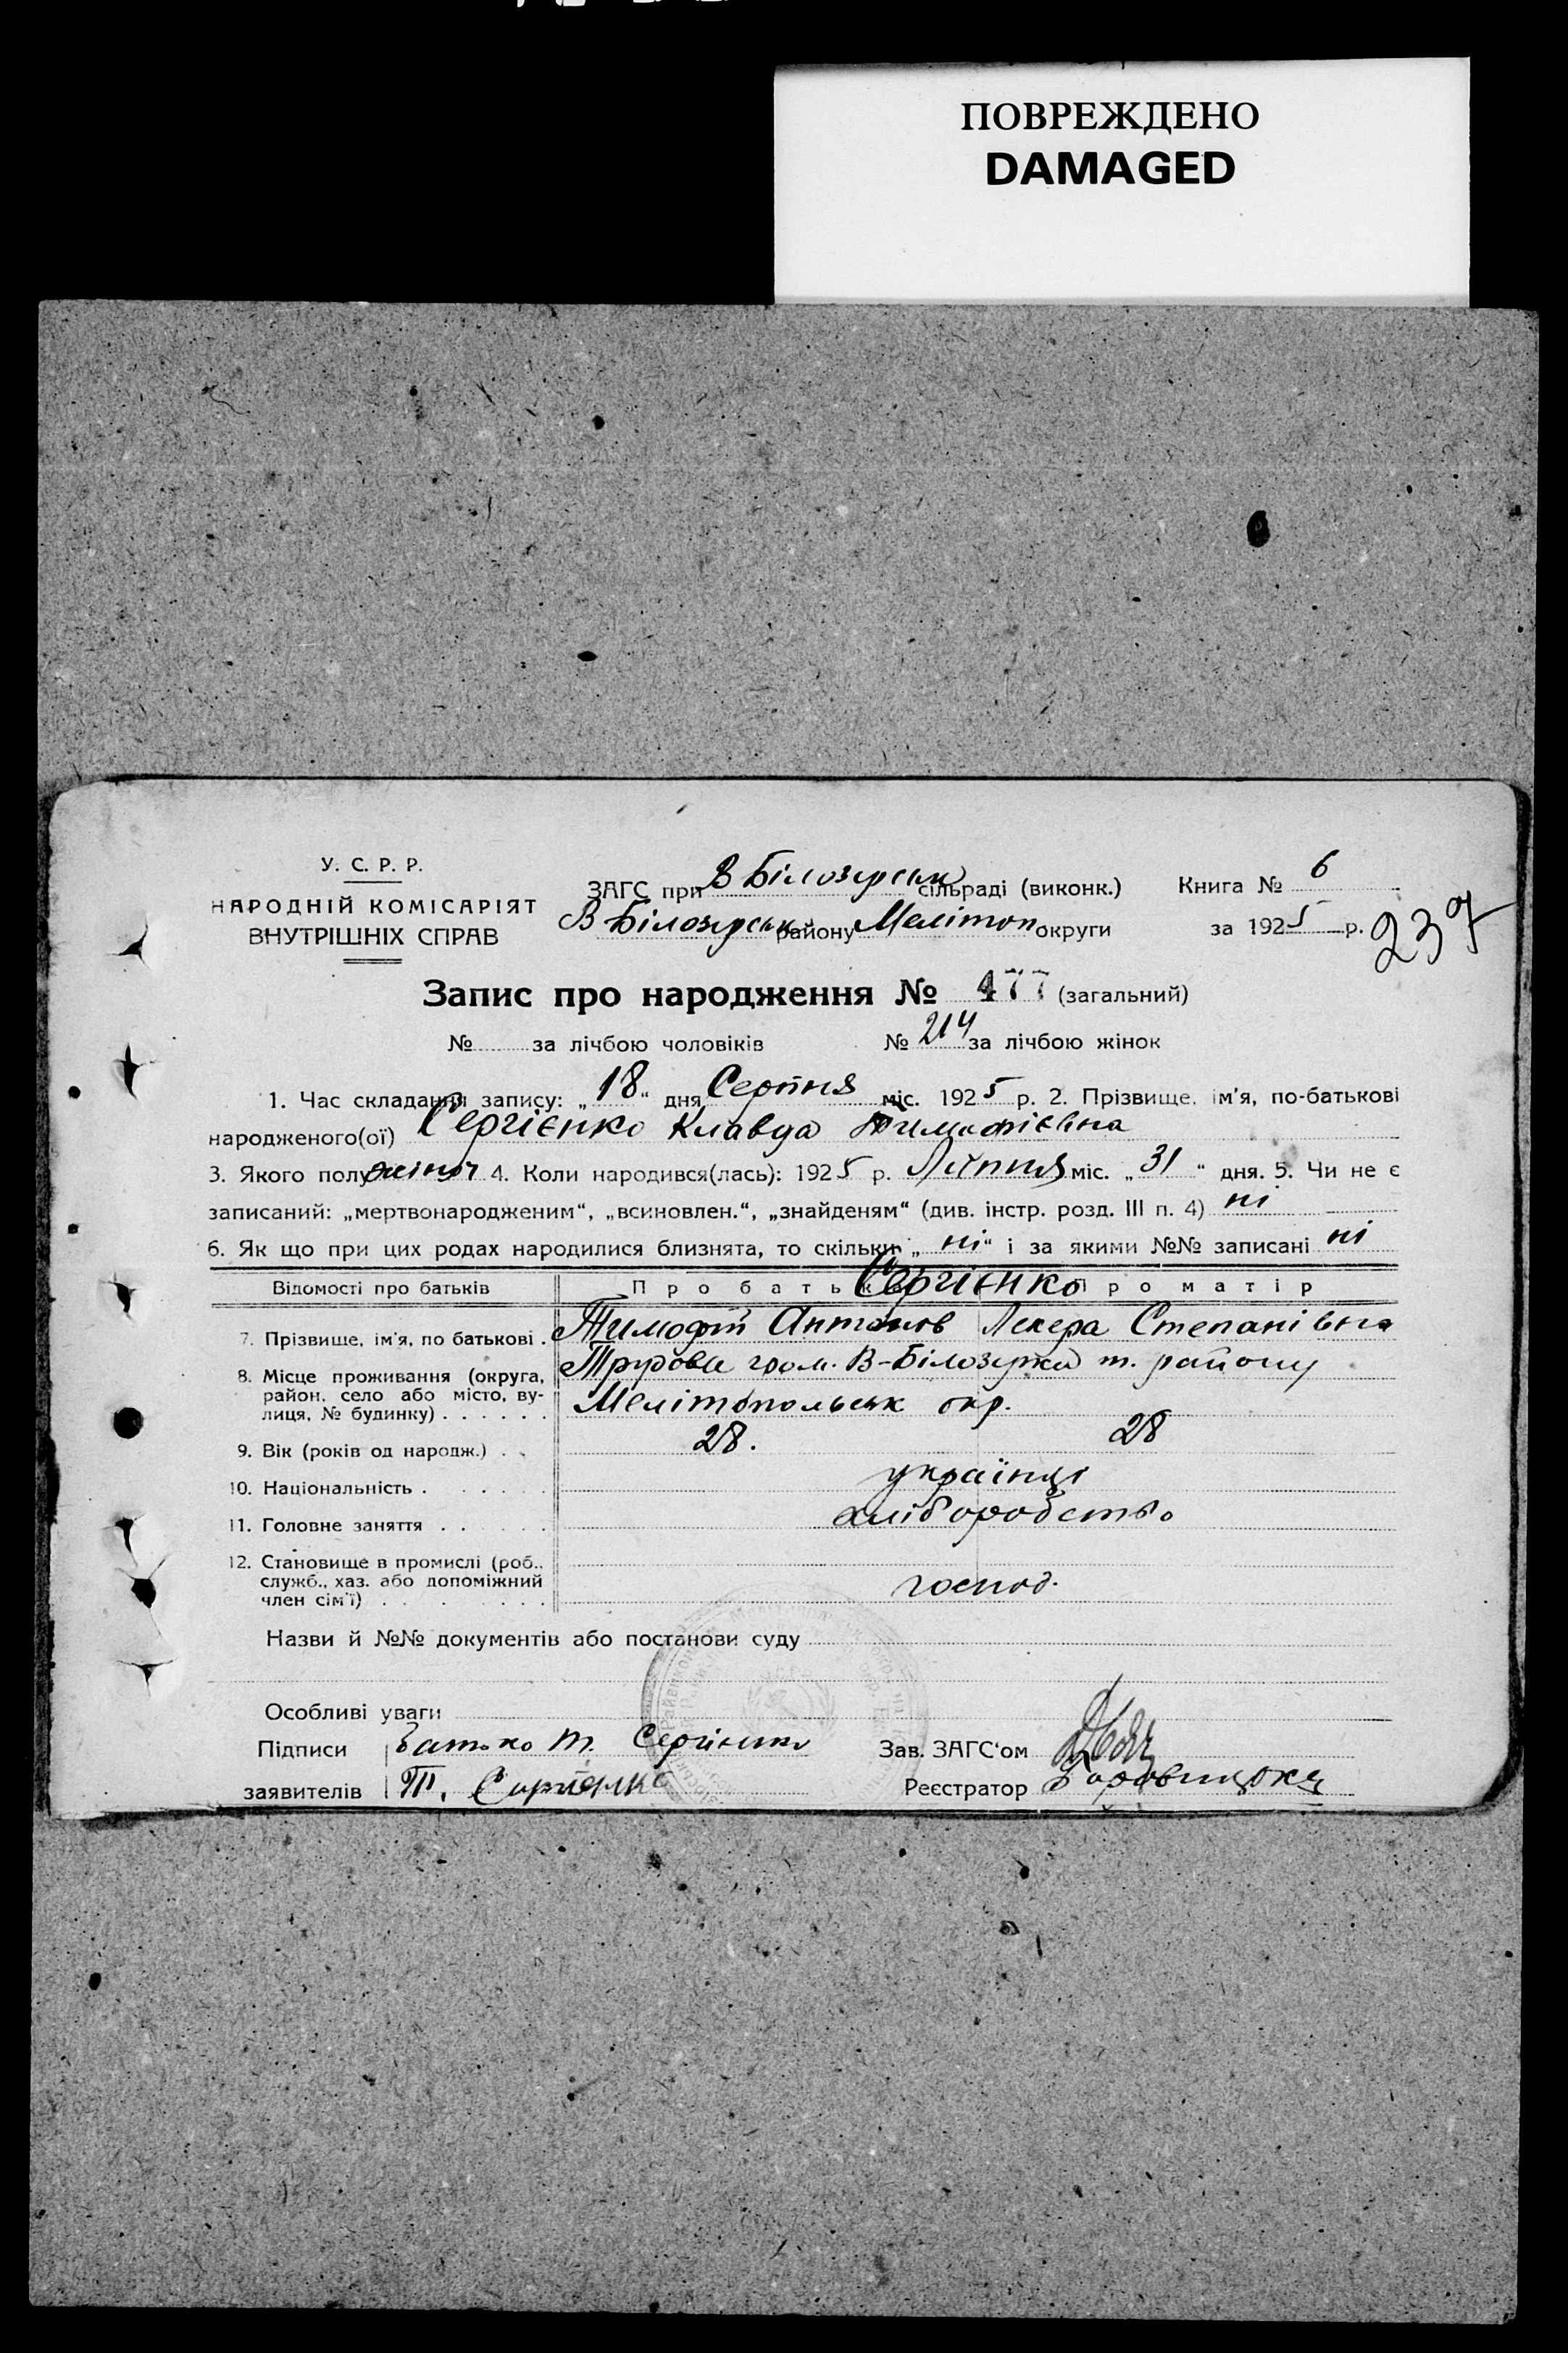 ПОВРЕЖДЕНО
DAMAGED
У. С. Р. Р.
НАРОДНІЙ КОМІСАРІЯТ
ВНУТРІШНІХ СПРАВ
ЗАГС при В Білозерськ сільраді (виконк.)
В Білозерськ району Мелітоп округи
Книга № 6
за 1925 р.
237
Запис про народження № 477 (загальний)
№ за лічбою чоловіків № 214 за лічбою жінок
1. Час складання запису: „18“ дня Серпня міс. 1925 р. 2. Прізвище, ім'я, по-батькові
народженого(ої) Сергієнко Клавда Тимофієвна
3. Якого полу жіноч 4. Коли народився(лась): 1925 р. Липня міс. „31“ дня. 5. Чи не є
записаний: „мертвонародженим“, „всиновлен.“, „знайденям“ (див. інстр. розд. III п. 4) ні
6. Як що при цих родах народилися близнята, то скільки „ні“ і за якими №№ записані ні
Відомості про батьків Про батька Про матір
Сергієнко
7. Прізвище, ім'я, по батькові . Тимофій Антонов Лекера Степанівна
8. Місце проживання (округа, Трудова гром. В-Білозерка т. району
район, село або місто, ву-
лиця, № будинку) . . . . . . Мелітопольськ окр.
9. Вік (років од народж.) . . 28. 28
10. Національність . . . . . . українці
11. Головне заняття . . . . . хліборобство
12. Становище в промислі (роб.,
служб., хаз. або допоміжний господ.
член сім'ї) . . . . . . .
Назви й №№ документів або постанови суду
Особливі уваги
Підписи Батько Т. Сергієнко
заявителів Т. Сергієнко
Зав. ЗАГС'ом
Реєстратор